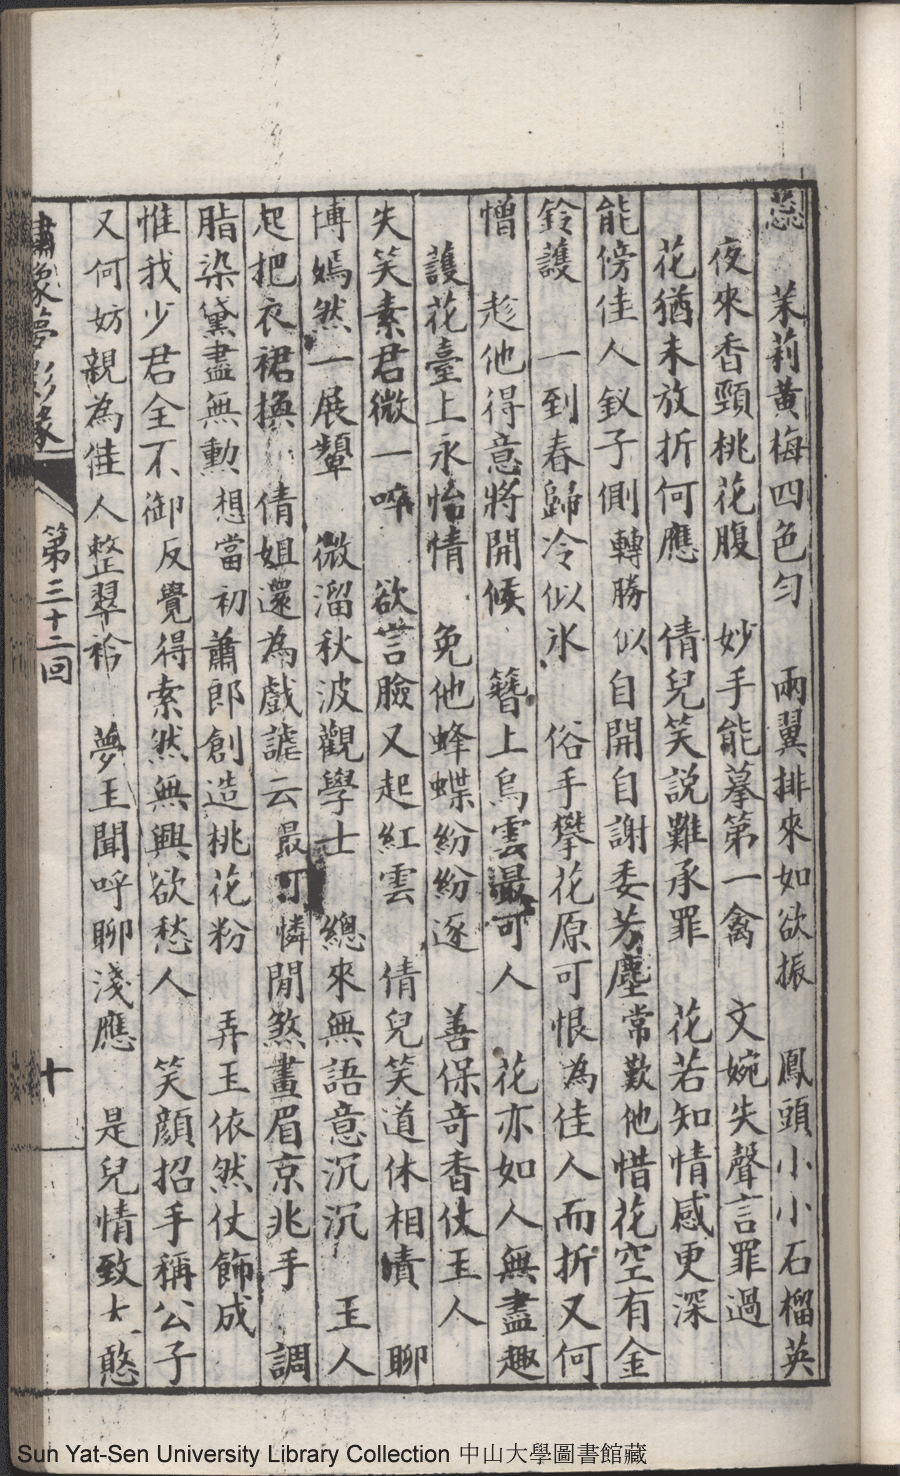 蕊　茉莉黃梅四色勻　兩翼排來如欲振　鳳頭小小石榴英
夜來香頸桃花腹　妙手能摹第一禽　文婉失聲言罪過
花猶未放折何應　倩兒笑説難承罪　花若知情感更深
能傍佳人釵子側轉勝似自開自謝委芳塵常歎他惜花空有金
鈴護　一到春歸冷似氷　俗手攀花原可恨為佳人而折又何
憎　趁他得意將開候　簪上烏雲最可人　花亦如人無盡趣
護花臺上永怡情　免他蜂蝶紛紛逐　善保奇香仗玉人
失笑素君微一啐　欲言臉又起紅雲　倩兒笑道休相責　聊
博嫣然一展顰　微溜秋波觀學士　總來無語意沉沉　玉人
起把衣裙換　倩姐還為戲謔云最可憐閒煞畫眉京兆手　調
脂染黛盡無勳　想當初蕭郎創造桃花粉　弄玉依然仗飾成
惟我少君全不御　反覺得索然無興欲愁人　笑顏招手稱公子
又何妨親為佳人整翠衿　夢玉聞呼聊淺應　是兒情致太憨
繡像夢影緣
第三十二回
十
Sun Yat-Sen University Library Collection 中山大學圖書館藏